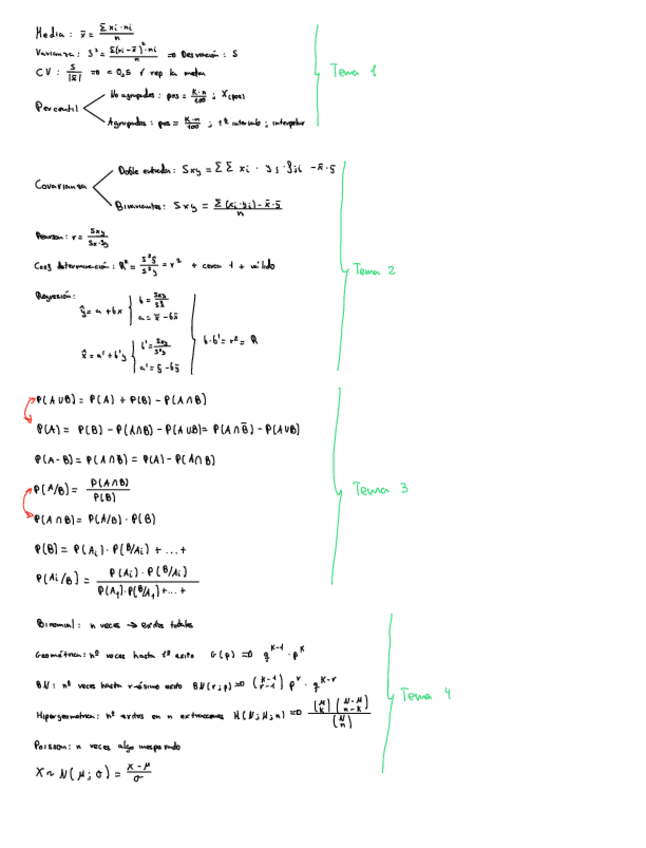 Media: x̄ = Σxi·ni / n
Varianza: S² = Σ(xi - x̄)²·ni / n => Desviación: S
CV: S / |x̄| => < 0,5 ✓ rep la media
Tema 1
Percentil
No agrupados: pos = K·n / 100 ; X(pos)
Agrupados: pos = K·n / 100 ; 1º intervalo ; interpolar
Covarianza
Doble entrada: Sxy = ΣΣ xi · yj · fij - x̄·ȳ
Bivariantes: Sxy = Σ(xi·yi) - x̄·ȳ / n
Pearson: r = Sxy / Sx·Sy
Coef determinación: R² = s²ŷ / s²y = r² + cerca 1 + válido
Tema 2
Regresión:
ŷ = a + bx
b = Sxy / S²x
a = x̄ - bx̄
x̂ = a' + b'y
b' = Sxy / S²y
a' = ȳ - bȳ
b·b' = r² = R
P(A∪B) = P(A) + P(B) - P(A∩B)
P(A) = P(B) - P(A∩B) - P(A∪B) = P(A∩B̄) - P(A∪B)
P(A-B) = P(A∩B) = P(A) - P(A∩B)
P(A/B) = P(A∩B) / P(B)
Tema 3
P(A∩B) = P(A/B) · P(B)
P(B) = P(Ai) · P(B/Ai) + ... +
P(Ai/B) = P(Ai) · P(B/Ai) / P(A1)·P(B/A1) + ... +
Binomial: n veces → exitos totales
Geométrica: nº veces hasta 1º exito G(p) => q^K-1 · p^K
BN: nº veces hasta r-ésimo exito BN(r;p) => (K-1 r-1) p^r · q^K-r
Tema 4
Hipergeometrica: nº exitos en n extracciones H(N;M;n) => (M K)(N-M n-K) / (N n)
Poisson: n veces algo inesperado
X ~ N(μ; σ) = X - μ / σ